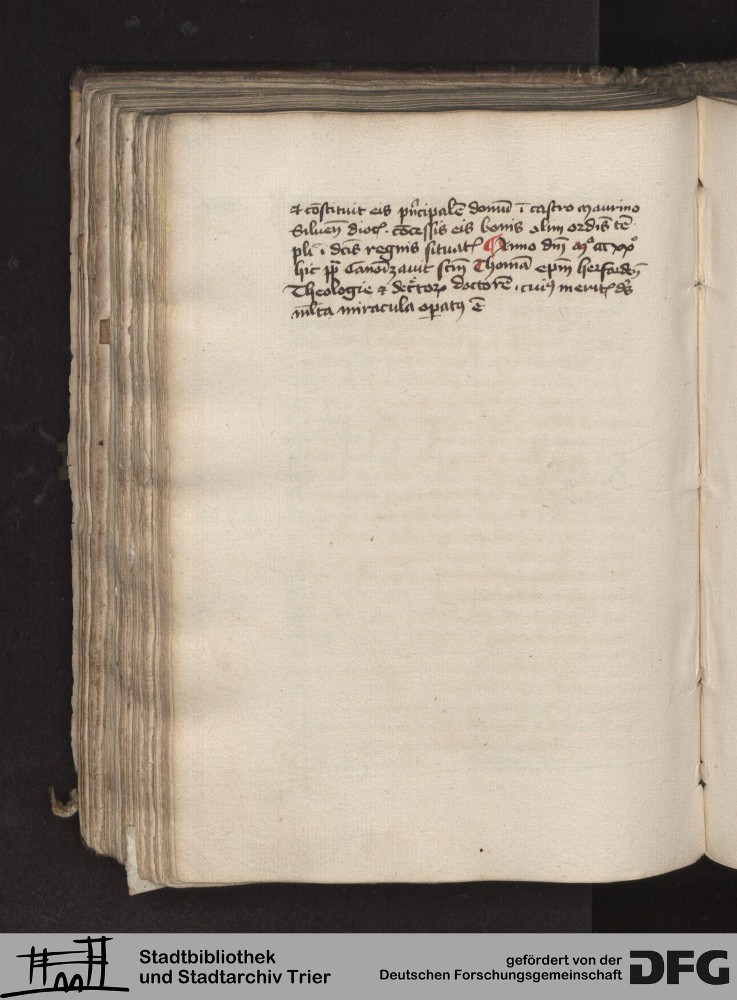 & cōstituit eis pͥncipalē domū ī castro maurino
Siluen̄ dioc̄. cōcessis eis bonis olim ordīs tē
pli ī dc̄is regnis situatꝭ Anno dn̄i mͦ ccc xxͦ
hic pp̄ canoīzauit sc̄m Thomā ep̄m herforden̄
Theologie & dec̄torꝝ doctorē . cuiꝰ meritꝭ dꝰs
ml̄ta miracula oꝑatꝰ ē
Stadtbibliothek
und Stadtarchiv Trier
gefördert von der
Deutschen Forschungsgemeinschaft DFG